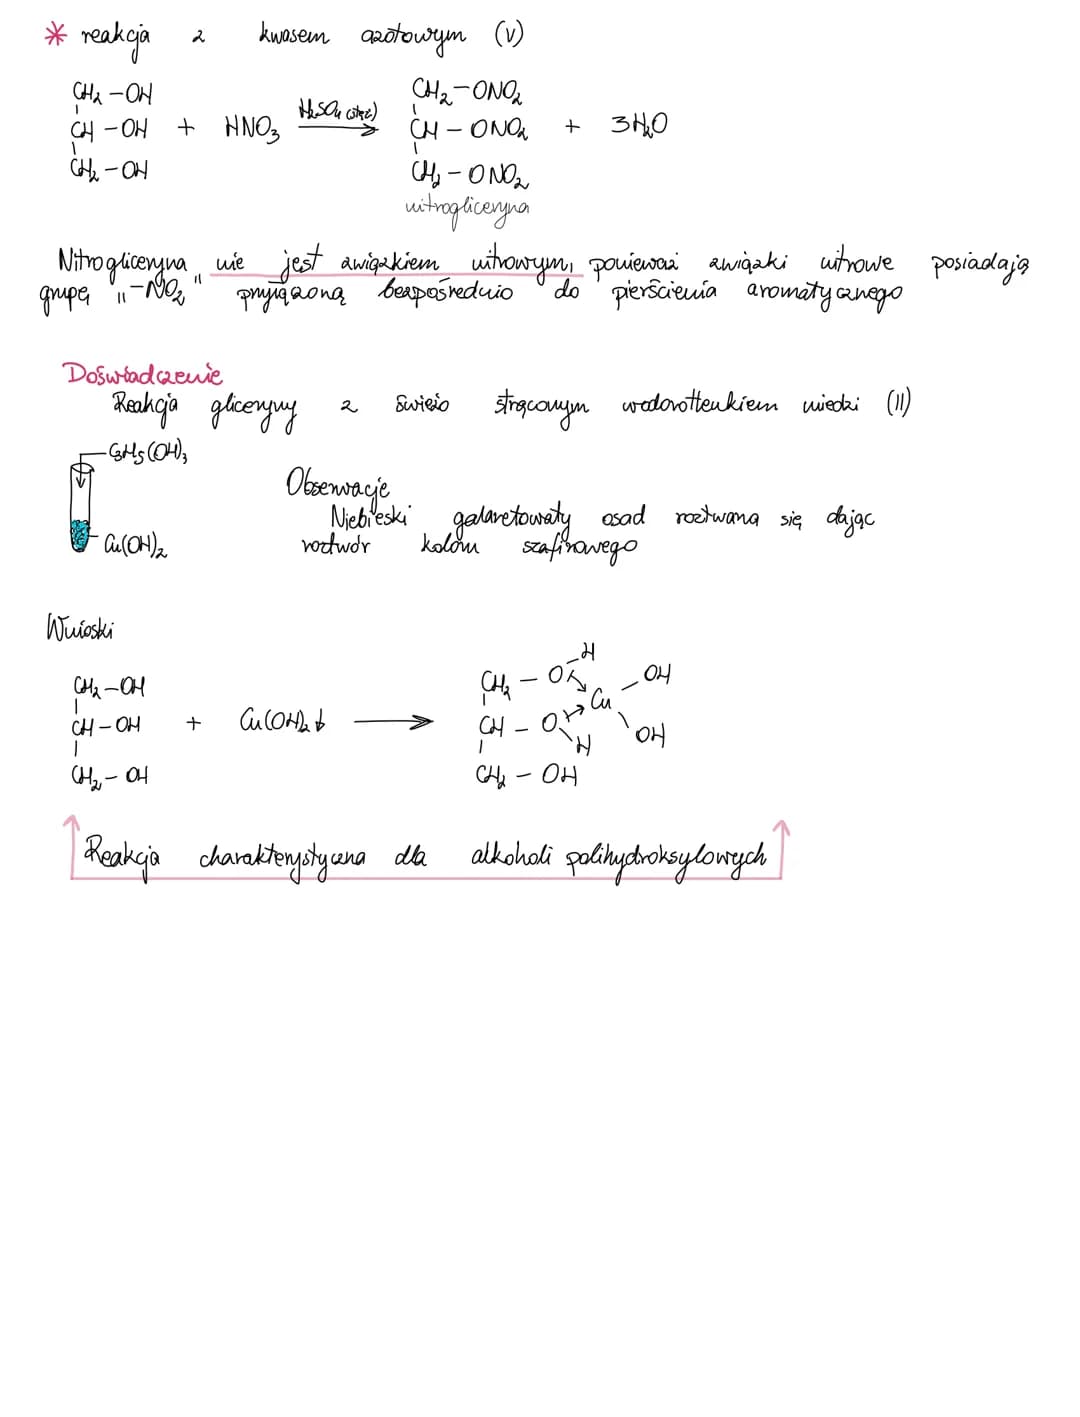 * reakcja z kwasem azotowym (V)
CH₂-OH CH₂-ONO₂
CH-OH + HNO₃ H₂SO₄ (stęż) CH-ONO₂ + 3H₂O
CH₂-OH CH₂-ONO₂
nitrogliceryna
Nitrogliceryna nie jest związkiem nitrowym, ponieważ związki nitrowe posiadają
grupę "-NO₂" przyłączoną bezpośrednio do pierścienia aromatycznego
Doświadczenie
Reakcja gliceryny z świeżo strąconym wodorotlenkiem miedzi (II)
C₃H₅(OH)₃
Obserwacje
Niebieski galaretowaty osad roztwarza się dając
Cu(OH)₂ roztwór koloru szafirowego
Wnioski
H
CH₂-OH CH₂-O Cu OH
CH-OH + Cu(OH)₂↓ → CH-O H OH
CH₂-OH CH₂-OH
Reakcja charakterystyczna dla alkoholi polihydroksylowych